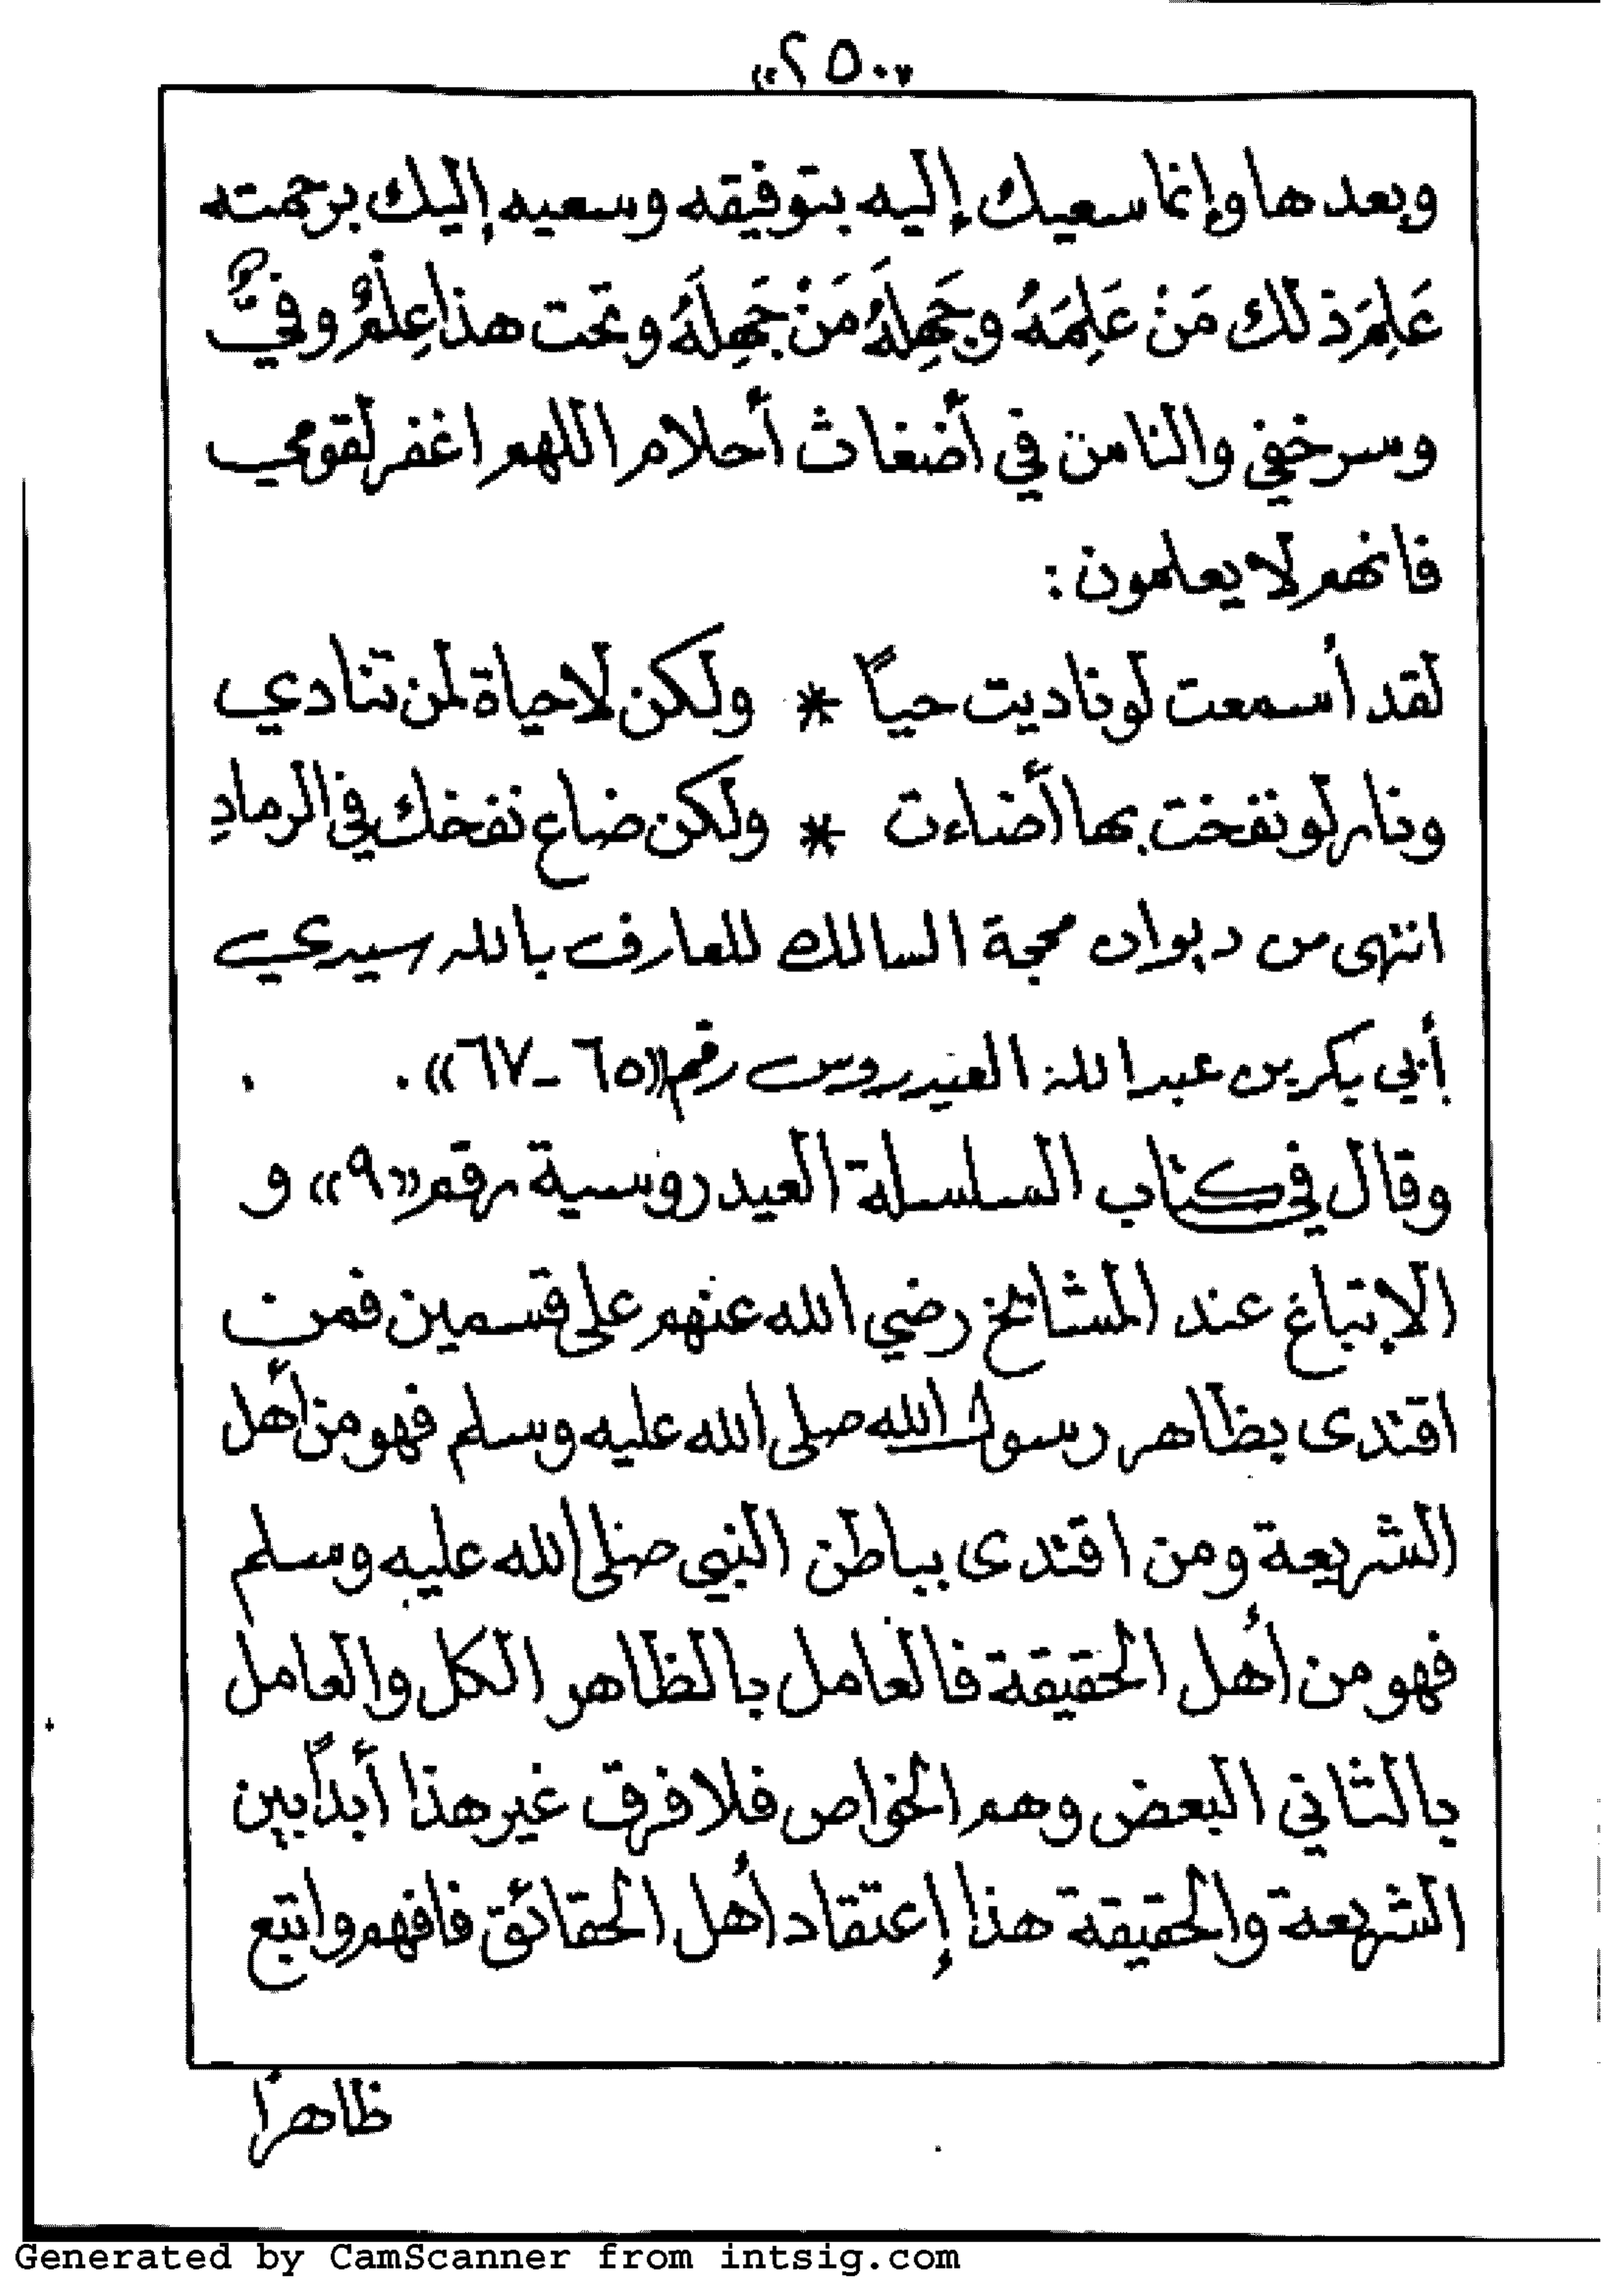 «٢٥٠»
وبعدها وإنما سعيك إليه بتوفيقه وسعيه إليك برحمته
عَلِمَ ذلك مَنْ عَلِمَهُ وجَهِلَهُ مَنْ جَهِلَهُ وتحت هذا عِلْمٌ وفيٌّ
وسر خفي والناس في أضغاث أحلام اللهم اغفر لقومي
فانهم لا يعلمون:
لقد أسمعت لو ناديت حياً * ولكن لا حياة لمن تنادي
ونار لو نفخت بها أضاءت * ولكن ضاع نفخك في الرمادِ
انتهى من ديوان محجة السالك للعارف بالله سيدي
أبي بكر بن عبد الله العيدروس رقم «٦٥-٦٧».
وقال في كتاب السلسلة العيدروسية رقم «٩» و
الإتباع عند المشائخ رضي الله عنهم على قسمين فمن
اقتدى بظاهر رسول الله صلى الله عليه وسلم فهو من أهل
الشريعة ومن اقتدى بباطن النبي صلى الله عليه وسلم
فهو من أهل الحقيقة فالعامل بالظاهر الكل والعامل
بالثاني البعض وهم الخواص فلا فرق غير هذا أبداً بين
الشريعة والحقيقة هذا إعتقاد أهل الحقائق فافهم واتبع
ظاهراً
Generated by CamScanner from intsig.com